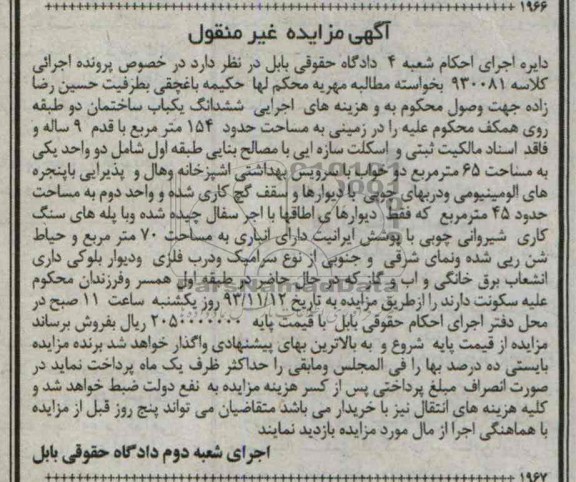 ۱۹۶۶
آگهی مزایده غیر منقول
دایره اجرای احکام شعبه ۴ دادگاه حقوقی بابل در نظر دارد در خصوص پرونده اجرائی
کلاسه ۹۳۰۰۸۱ بخواسته مطالبه مهریه محکم لها حکیمه باغچقی بطرفیت حسین رضا
زاده جهت وصول محکوم به و هزینه های اجرایی ششدانگ یکباب ساختمان دو طبقه
روی همکف محکوم علیه را در زمینی به مساحت حدود ۱۵۴ متر مربع با قدم ۹ ساله و
فاقد اسناد مالکیت ثبتی و اسکلت سازه ایی با مصالح بنایی طبقه اول شامل دو واحد یکی
به مساحت ۶۵ مترمربع دو خواب با سرویس بهداشتی اشپزخانه وهال و پذیرایی باپنجره
های الومینیومی ودربهای چوبی با دیوارها و سقف گچ کاری شده و واحد دوم به مساحت
حدود ۴۵ مترمربع که فقط دیوارهای اطاقها با اجر سفال چیده شده وبا پله های سنگ
کاری شیروانی چوبی با پوشش ایرانیت دارای انباری به مساحت ۷۰ متر مربع و حیاط
شن ریی شده ونمای شرقی و جنوبی از نوع سرامیک ودرب فلزی ودیوار بلوکی داری
انشعاب برق خانگی و اب و گاز که در حال حاضر در طبقه اول همسر وفرزندان محکوم
علیه سکونت دارند را ازطریق مزایده به تاریخ ۹۳/۱۱/۱۲ روز یکشنبه ساعت ۱۱ صبح در
محل دفتر اجرای احکام حقوقی بابل با قیمت پایه ۲۰۵۰۰۰۰۰۰۰ ریال بفروش برساند
مزایده از قیمت پایه شروع و به بالاترین بهای پیشنهادی واگذار خواهد شد برنده مزایده
بایستی ده درصد بها را فی المجلس ومابقی را حداکثر ظرف یک ماه پرداخت نماید در
صورت انصراف مبلغ پرداختی پس از کسر هزینه مزایده به نفع دولت ضبط خواهد شد و
کلیه هزینه های انتقال نیز با خریدار می باشد متقاضیان می تواند پنج روز قبل از مزایده
با هماهنگی اجرا از مال مورد مزایده بازدید نمایند
اجرای شعبه دوم دادگاه حقوقی بابل
۱۹۶۷
ParsNamadData